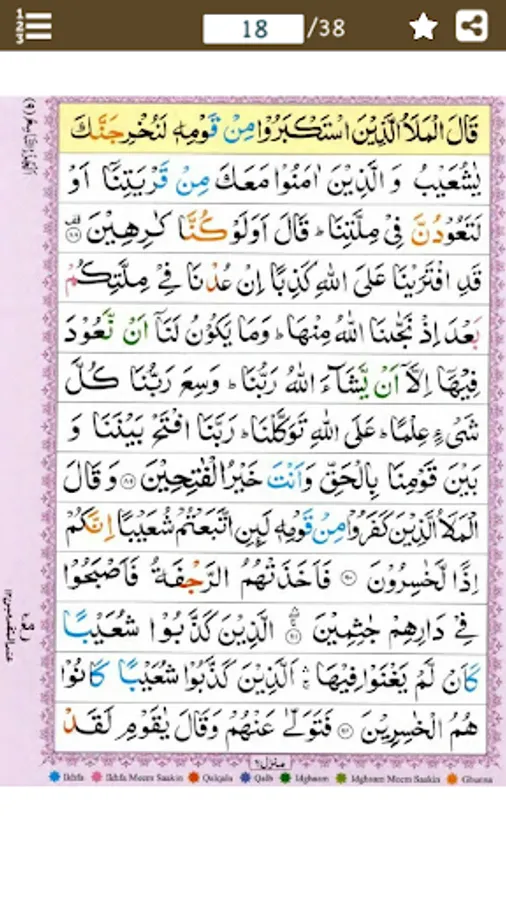 18 /38
قَالَ الْمَلَاُ الَّذِيْنَ اسْتَكْبَرُوْا مِنْ قَوْمِهٖ لَنُخْرِجَنَّكَ
يٰشُعَيْبُ وَ الَّذِيْنَ اٰمَنُوْا مَعَكَ مِنْ قَرْيَتِنَاۤ اَوْ
لَتَعُوْدُنَّ فِیْ مِلَّتِنَا ؕ قَالَ اَوَلَوْ كُنَّا كٰرِهِيْنَ ۟ ۸۸
قَدِ افْتَرَيْنَا عَلَی اللّٰهِ كَذِبًا اِنْ عُدْنَا فِیْ مِلَّتِكُمْ
بَعْدَ اِذْ نَجّٰىنَا اللّٰهُ مِنْهَا ؕ وَمَا يَكُوْنُ لَنَاۤ اَنْ نَّعُوْدَ
فِيْهَاۤ اِلَّاۤ اَنْ يَّشَآءَ اللّٰهُ رَبُّنَا ؕ وَسِعَ رَبُّنَا كُلَّ
شَیْءٍ عِلْمًا ؕ عَلَی اللّٰهِ تَوَكَّلْنَا ؕ رَبَّنَا افْتَحْ بَيْنَنَا وَ
بَيْنَ قَوْمِنَا بِالْحَقِّ وَاَنْتَ خَيْرُ الْفٰتِحِيْنَ ۸۹ وَ قَالَ
الْمَلَاُ الَّذِيْنَ كَفَرُوْا مِنْ قَوْمِهٖ لَىِٕنِ اتَّبَعْتُمْ شُعَيْبًا اِنَّكُمْ
اِذًا لَّخٰسِرُوْنَ ۹۰ فَاَخَذَتْهُمُ الرَّجْفَةُ فَاَصْبَحُوْا
فِیْ دَارِهِمْ جٰثِمِيْنَ ۹۱ الَّذِيْنَ كَذَّبُوْا شُعَيْبًا
كَاَنْ لَّمْ يَغْنَوْا فِيْهَا ۛ اَلَّذِيْنَ كَذَّبُوْا شُعَيْبًا كَانُوْا
هُمُ الْخٰسِرِيْنَ ۹۲ فَتَوَلّٰی عَنْهُمْ وَقَالَ يٰقَوْمِ لَقَدْ
منزل ۲
Ikhfa Ikhfa Meem Saakin Qalqala Qalb Idghaam Idghaam Meem Saakin Ghunna